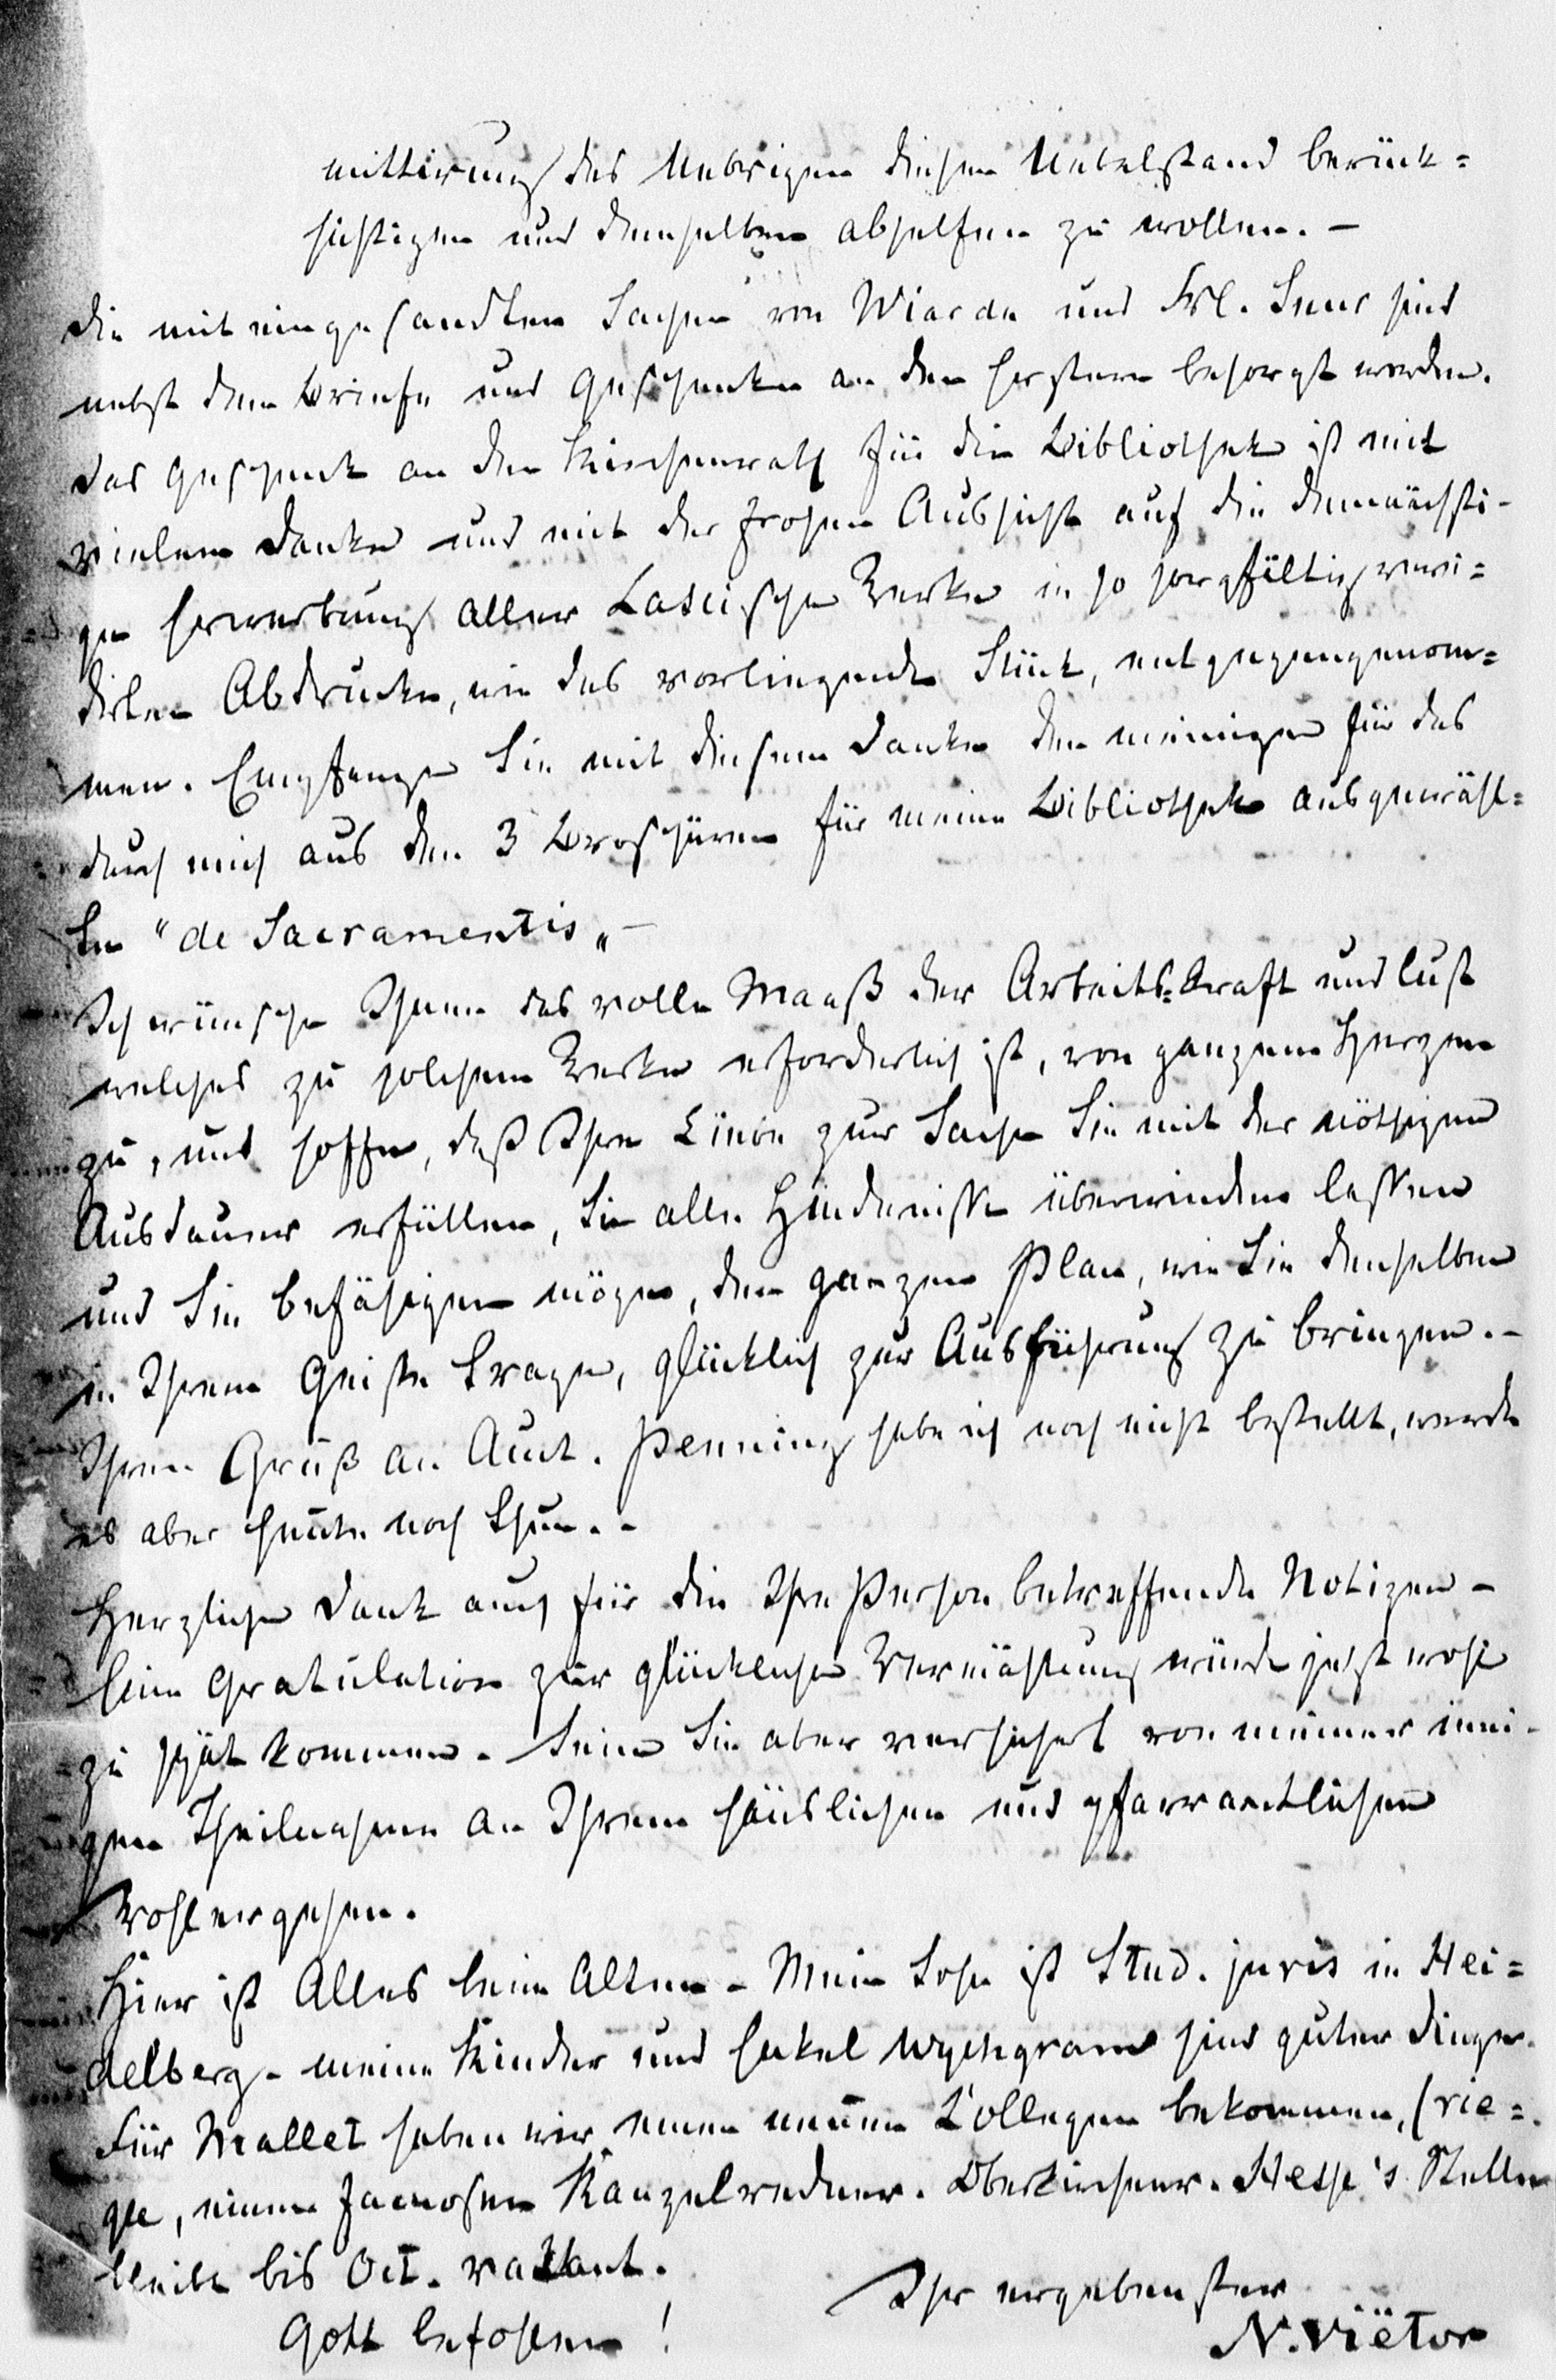 mittirung des Uebrigen diesen Uebelstand berück=
sichtigen und demselben abhelfen zu wollen. –
Die mit eingesandten Sachen von Wiarda und Frl. Snur sind
nebst dem Briefe und Geschenke an den Erstern besorgt worden.
Das Geschenk an den Kirchenrath für die Bibliothek ist mit
vielem Danke und mit der frohen Aussicht auf die demnächsti-
ge Erwerbung aller Lascischen Werke in so sorgfältig revi=
dirten Abdrucke, wie das vorliegende Stück, entgegengenom=
men. Empfangen Sie mit diesem Danke den meinigen für das
durch mich aus den 3 Broschüren für meine Bibliothek ausgewähl=
te "de Sacramentis„ –
Ich wünsche Ihnen das volle Maaß der Arbeits=Kraft und Lust
welches zu solchem Werke erforderlich ist, von ganzem Herzen
zu, und hoffe, daß Ihre Liebe zur Sache Sie mit der nöthigen
Ausdauer erfüllen, Sie alle Hindernisse überwinden lassen
und Sie befähigen möge, den ganzen Plan, wie Sie denselben
in Ihrem Geiste tragen, glücklich zur Ausführung zu bringen. –
Ihren Gruß an Amt. Penning habe ich noch nicht bestellt, werde
es aber heute noch thun. –
Herzlichen Dank auch für die Ihre Person betreffende Notizen –
Eine Gratulation zur glücklichen Vermählung würde jetzt wohl
zu spät kommen. Seien Sie aber versichert von meiner inni-
gen Theilnahme an Ihrem häuslichen und pfarramtlichen
Wohlergehen.
Hier ist Alles beim Alten – Mein Sohn ist Stud. juris in Hei=
delberg – meine Kinder und Enkel Wychgram sind guter Dinge.
Für Mallet haben wir einen neuen Collegen bekommen, Vie=
gle, einen famosen Kanzelredner. Oberkirchenr. Hesse's Stelle
bleibt bis Oct. vakant.
Ihr ergebenster
Gott befohlen!
N. Viëtor